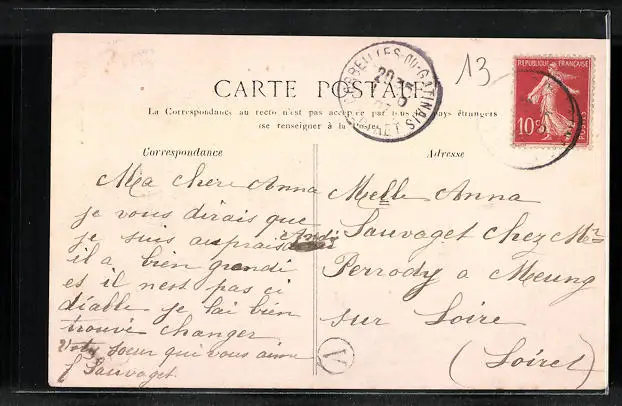 CARTE POSTALE
La Correspondance au recto n'est pas acceptée par tous pays étrangers
(se renseigner à la Poste)
Correspondance
Ma chere Anna
je vous dirais que
je suis auprais Andr
il a bien grandi
es il nest pas ci
diable je lai bien
trouvé changer
Votre soeur qui vous aime
Sauvaget
Adresse
Melle Anna
Sauvaget chez Mr
Perrody a Meung
sur Loire
(Loiret)
V
13
BEILLES-DU-GATINAIS
LOIRET
20
REPUBLIQUE FRANÇAISE
10c
POSTES